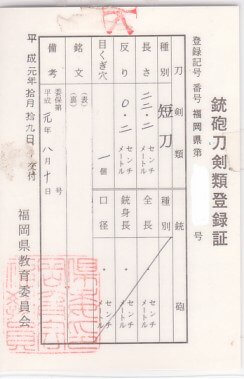 銃砲刀剣類登録証
登録記号番号 福岡県第 号
刀剣類
種別 短刀
長さ 二二・二 センチメートル
反り 〇・二 センチメートル
目くぎ穴 一個
銘文 (表)
(裏)
備考
銃砲
種別
全長 ・ センチメートル
銃身長 ・ センチメートル
口径 ・ センチメートル
平成元年 八月十 日
平成元年拾月拾九日 交付
福岡県教育委員会